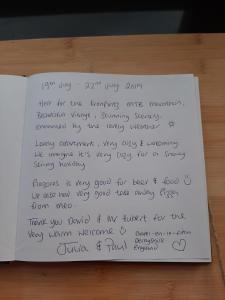 19th July - 22nd July 2019
Here for the MTB mountain,
Beautiful village, Stunning Scenery,
enhanced by the lovely weather
Lovely apartment, very cosy & welcoming
We imagine it's very cosy for a snowy
skiing holiday
is very good for beer & food
We also had very good take away pizza
from
Thank you David & Mr Hubert for the
very warm welcome
Julia & Paul
Derbyshire
England